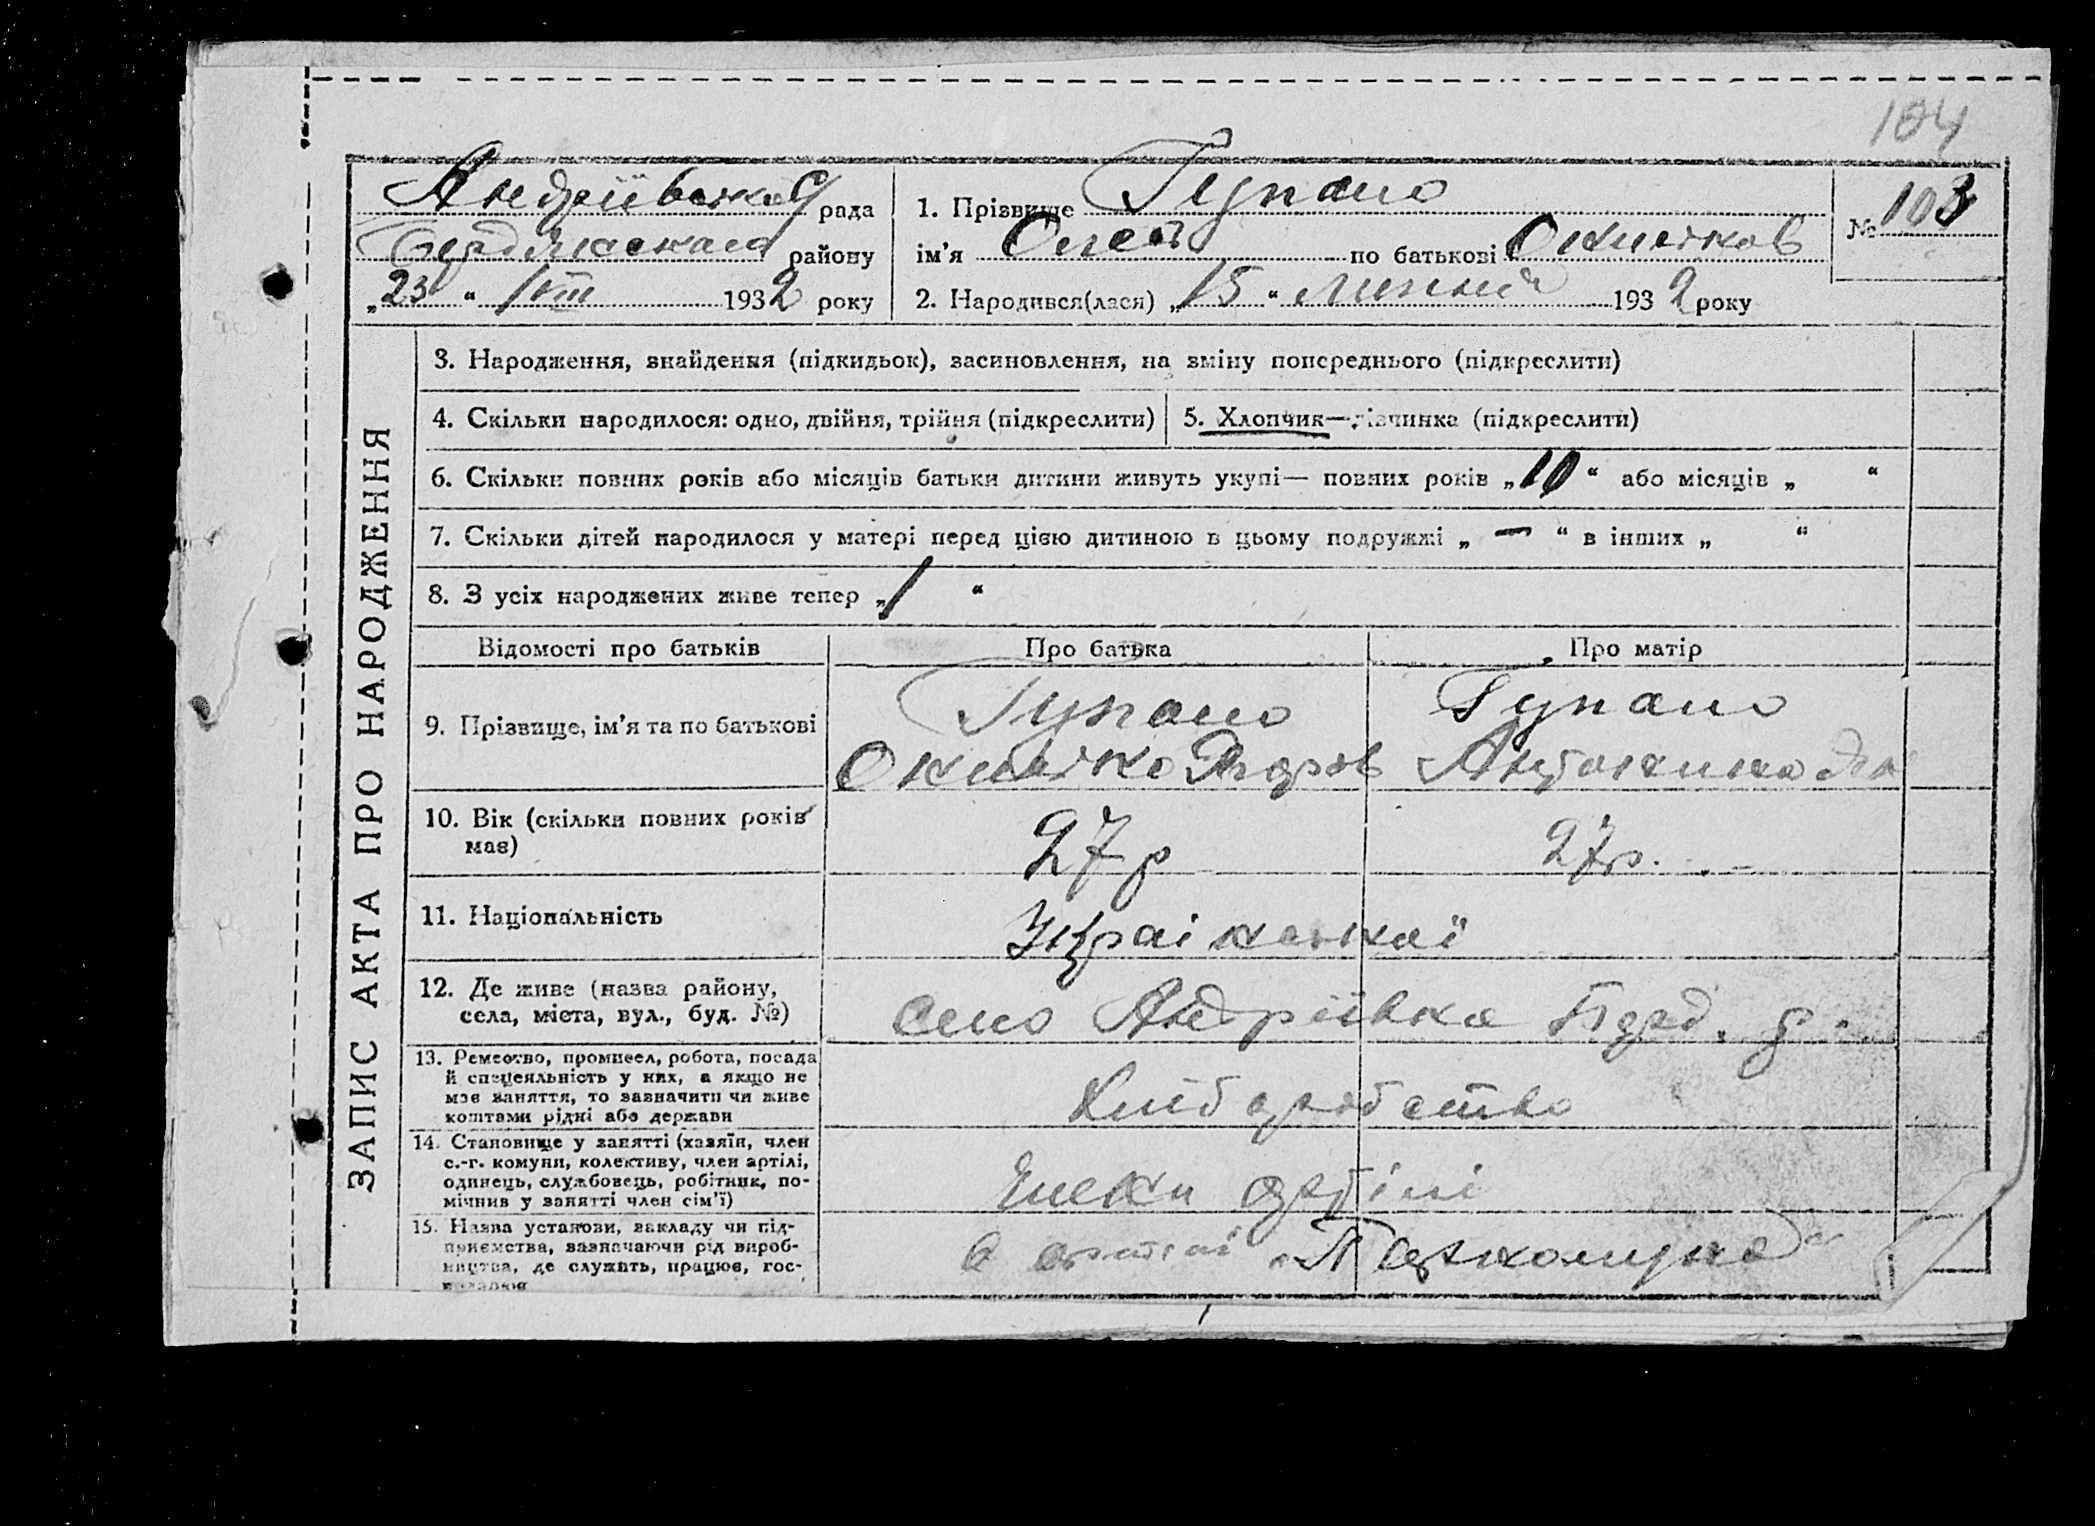 104
Андріївська с/рада
Бердянского району
„23“ VIII 1932 року
1. Прізвище Гупало
ім’я Олег по батькові
№ 103
2. Народився(лася) „15“ Липня 1932 року
ЗАПИС АКТА ПРО НАРОДЖЕННЯ
3. Народження, знайдення (підкидьок), засиновлення, на зміну попереднього (підкреслити)
4. Скільки народилося: одно, двійня, трійня (підкреслити)
5. Хлопчик—дівчинка (підкреслити)
6. Скільки повних років або місяців батьки дитини живуть укупі— повних років „10“ або місяців „ “
7. Скільки дітей народилося у матері перед цією дитиною в цьому подружжі „—“ в інших „ “
8. З усіх народжених живе тепер „1 “
Відомості про батьків
Про батька
Про матір
9. Прізвище, ім’я та по батькові
Гупало
Гупало
Антонина
10. Вік (скільки повних років
має)
27 р
27 р.
11. Національність
Украінскої
12. Де живе (назва району,
села, міста, вул., буд. №)
село Андріївка Берд. р.
13. Ремество, промисел, робота, посада
й спеціяльність у них, а якщо не
має заняття, то зазначити чи живе
коштами рідні або держави
Хліборобство
14. Становище у занятті (хазяїн, член
с.-г. комуни, колективу, член артілі,
одинець, службовець, робітник, по-
мічник у занятті член сім’ї)
Члени артілі
15. Назва установи, закладу чи під-
приємства, зазначаючи рід вироб-
ництва, де служить, працює, гос-
подарює
в артілі „Паркомуна“